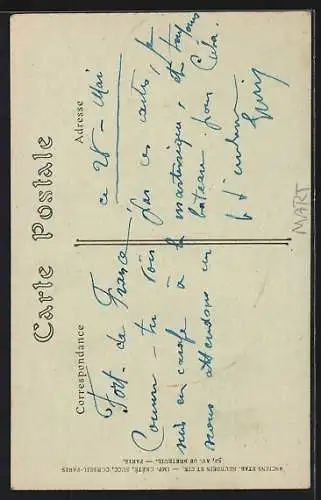 Carte Postale
Correspondance
Adresse
Fort de France ce 28 - Mai
Comme tu vois par ces cartes, je
suis en carafe à la martinique, et toujours
nous attendons un bateau pour Cuba.
MART
ANCIENS ETAB. NEURDEIN ET CIE. — IMP. CRÉTÉ, SUCC., CORBEIL-PARIS
52, AV. DE BRETEUIL. — PARIS.